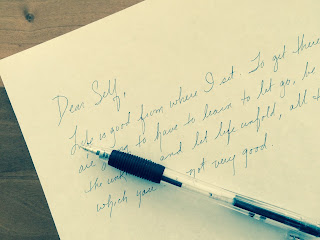 Dear Self,
Life is good from where I sit. To get there
are going to have to learn to let go, be
the and let life unfold, all t
which you not very good.